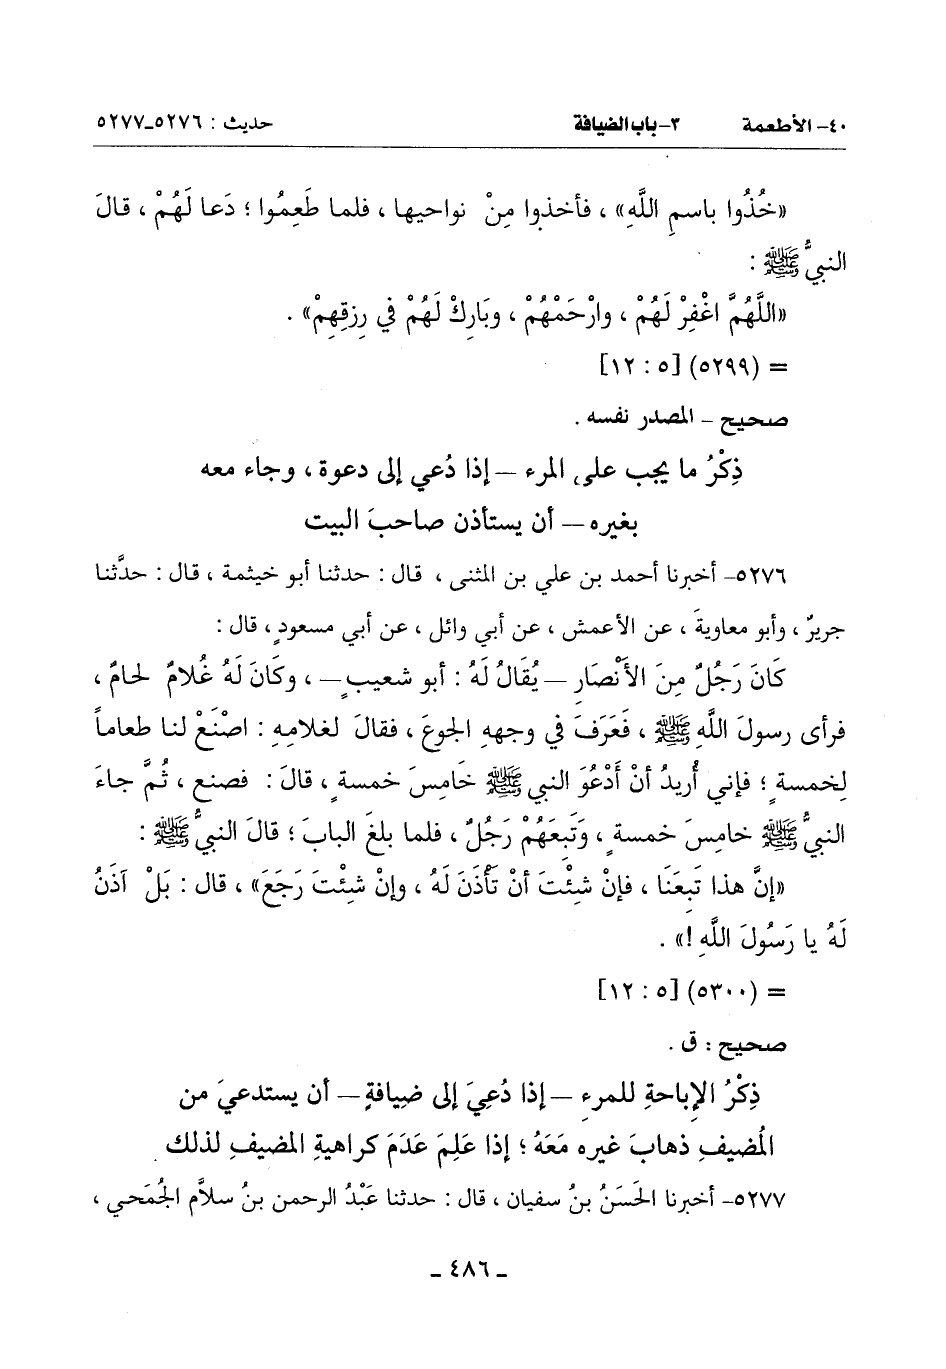 ٤٠- الأطعمة ٣- باب الضيافة حديث : ٥٢٧٦ـ٥٢٧٧
«خُذُوا باسمِ اللَّهِ» ، فأخذوا مِنْ نواحيها ، فلما طَعِمُوا ؛ دَعا لَهُمْ ، قالَ
النبيُّ ﷺ :
«اللَّهُمَّ اغْفِرْ لَهُمْ ، وارْحَمْهُمْ ، وبَارِكْ لَهُمْ في رِزقِهِمْ» .
= (٥٢٩٩) [٥ : ١٢]
صحيح ـ المصدر نفسه .
ذِكْرُ ما يجب على المرء – إذا دُعي إلى دعوة ، وجاء معه
بغيره – أن يستأذن صاحبَ البيت
٥٢٧٦- أخبرنا أحمد بن علي بن المثنى ، قال : حدثنا أبو خيثمة ، قال : حدَّثنا
جريرٌ ، وأبو معاويةَ ، عن الأعمش ، عن أبي وائل ، عن أبي مسعودٍ ، قال :
كَانَ رَجُلٌ مِنَ الأَنْصَارِ – يُقَالُ لَهُ : أبو شعيبٍ – ، وكَانَ لَهُ غُلامٌ لحامٌ ،
فرأى رسولَ اللَّهِ ﷺ ، فَعَرَفَ في وجههِ الجوعَ ، فقالَ لغلامِهِ : اصْنَعْ لنا طعاماً
لِخمسةٍ ؛ فإني أُريدُ أنْ أَدْعُوَ النبي ﷺ خَامِسَ خمسةٍ ، قالَ : فصنع ، ثُمَّ جاءَ
النبيُّ ﷺ خامِسَ خمسةٍ ، وتَبِعَهُمْ رَجُلٌ ، فلما بلغَ البابَ ؛ قالَ النبيُّ ﷺ :
«إنَّ هذا تَبِعَنَا ، فإنْ شِئْتَ أنْ تَأْذَنَ لَهُ ، وإنْ شِئْتَ رَجَعَ» ، قال : بَلْ آذَنُ
لَهُ يا رَسُولَ اللَّهِ !» .
= (٥٣٠٠) [٥ : ١٢]
صحيح : ق .
ذِكْرُ الإباحةِ للمرءِ – إذا دُعِيَ إلى ضِيافةٍ – أن يستدعيَ من
المُضيفِ ذهابَ غيرِه مَعَهُ ؛ إذا عَلِمَ عَدَمَ كراهيةِ المضيفِ لذلك
٥٢٧٧- أخبرنا الحَسَنُ بنُ سفيان ، قال : حدثنا عَبْدُ الرحمن بنُ سلاَّم الجُمَحي ،
ـ ٤٨٦ ـ